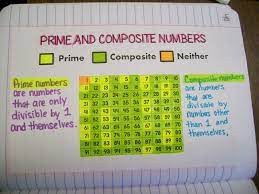 PRIME AND COMPOSITE NUMBERS
Prime Composite Neither
Prime numbers
are numbers
that are only
divisible by 1
and themselves.
1 2 3 4 5 6 7 8 9 10
11 12 13 14 15 16 17 18 19 20
21 22 23 24 25 26 27 28 29 30
31 32 33 34 35 36 37 38 39 40
41 42 43 44 45 46 47 48 49 50
51 52 53 54 55 56 57 58 59 60
61 62 63 64 65 66 67 68 69 70
71 72 73 74 75 76 77 78 79 80
81 82 83 84 85 86 87 88 89 90
91 92 93 94 95 96 97 98 99 100
Composite numbers
are numbers
that are
divisible by
numbers other
than 1 and
themselves.